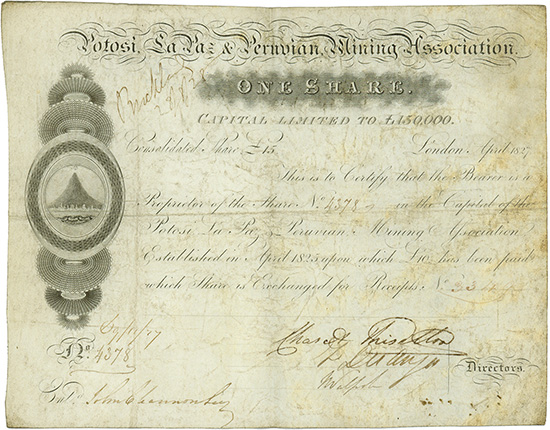 Potosi, La Paz & Peruvian Mining Association.
ONE SHARE.
CAPITAL LIMITED TO £150,000.
Consolidated Share £15. London April 1827
This is to Certify that the Bearer is a
Proprietor of the Share No. 4378 in the Capital of the
Potosi La Paz & Peruvian Mining Association
Established in April 1825 upon which £10 has been paid
which Share is Exchanged for Receipts No.
No. 4378
Directors.
Entd. John